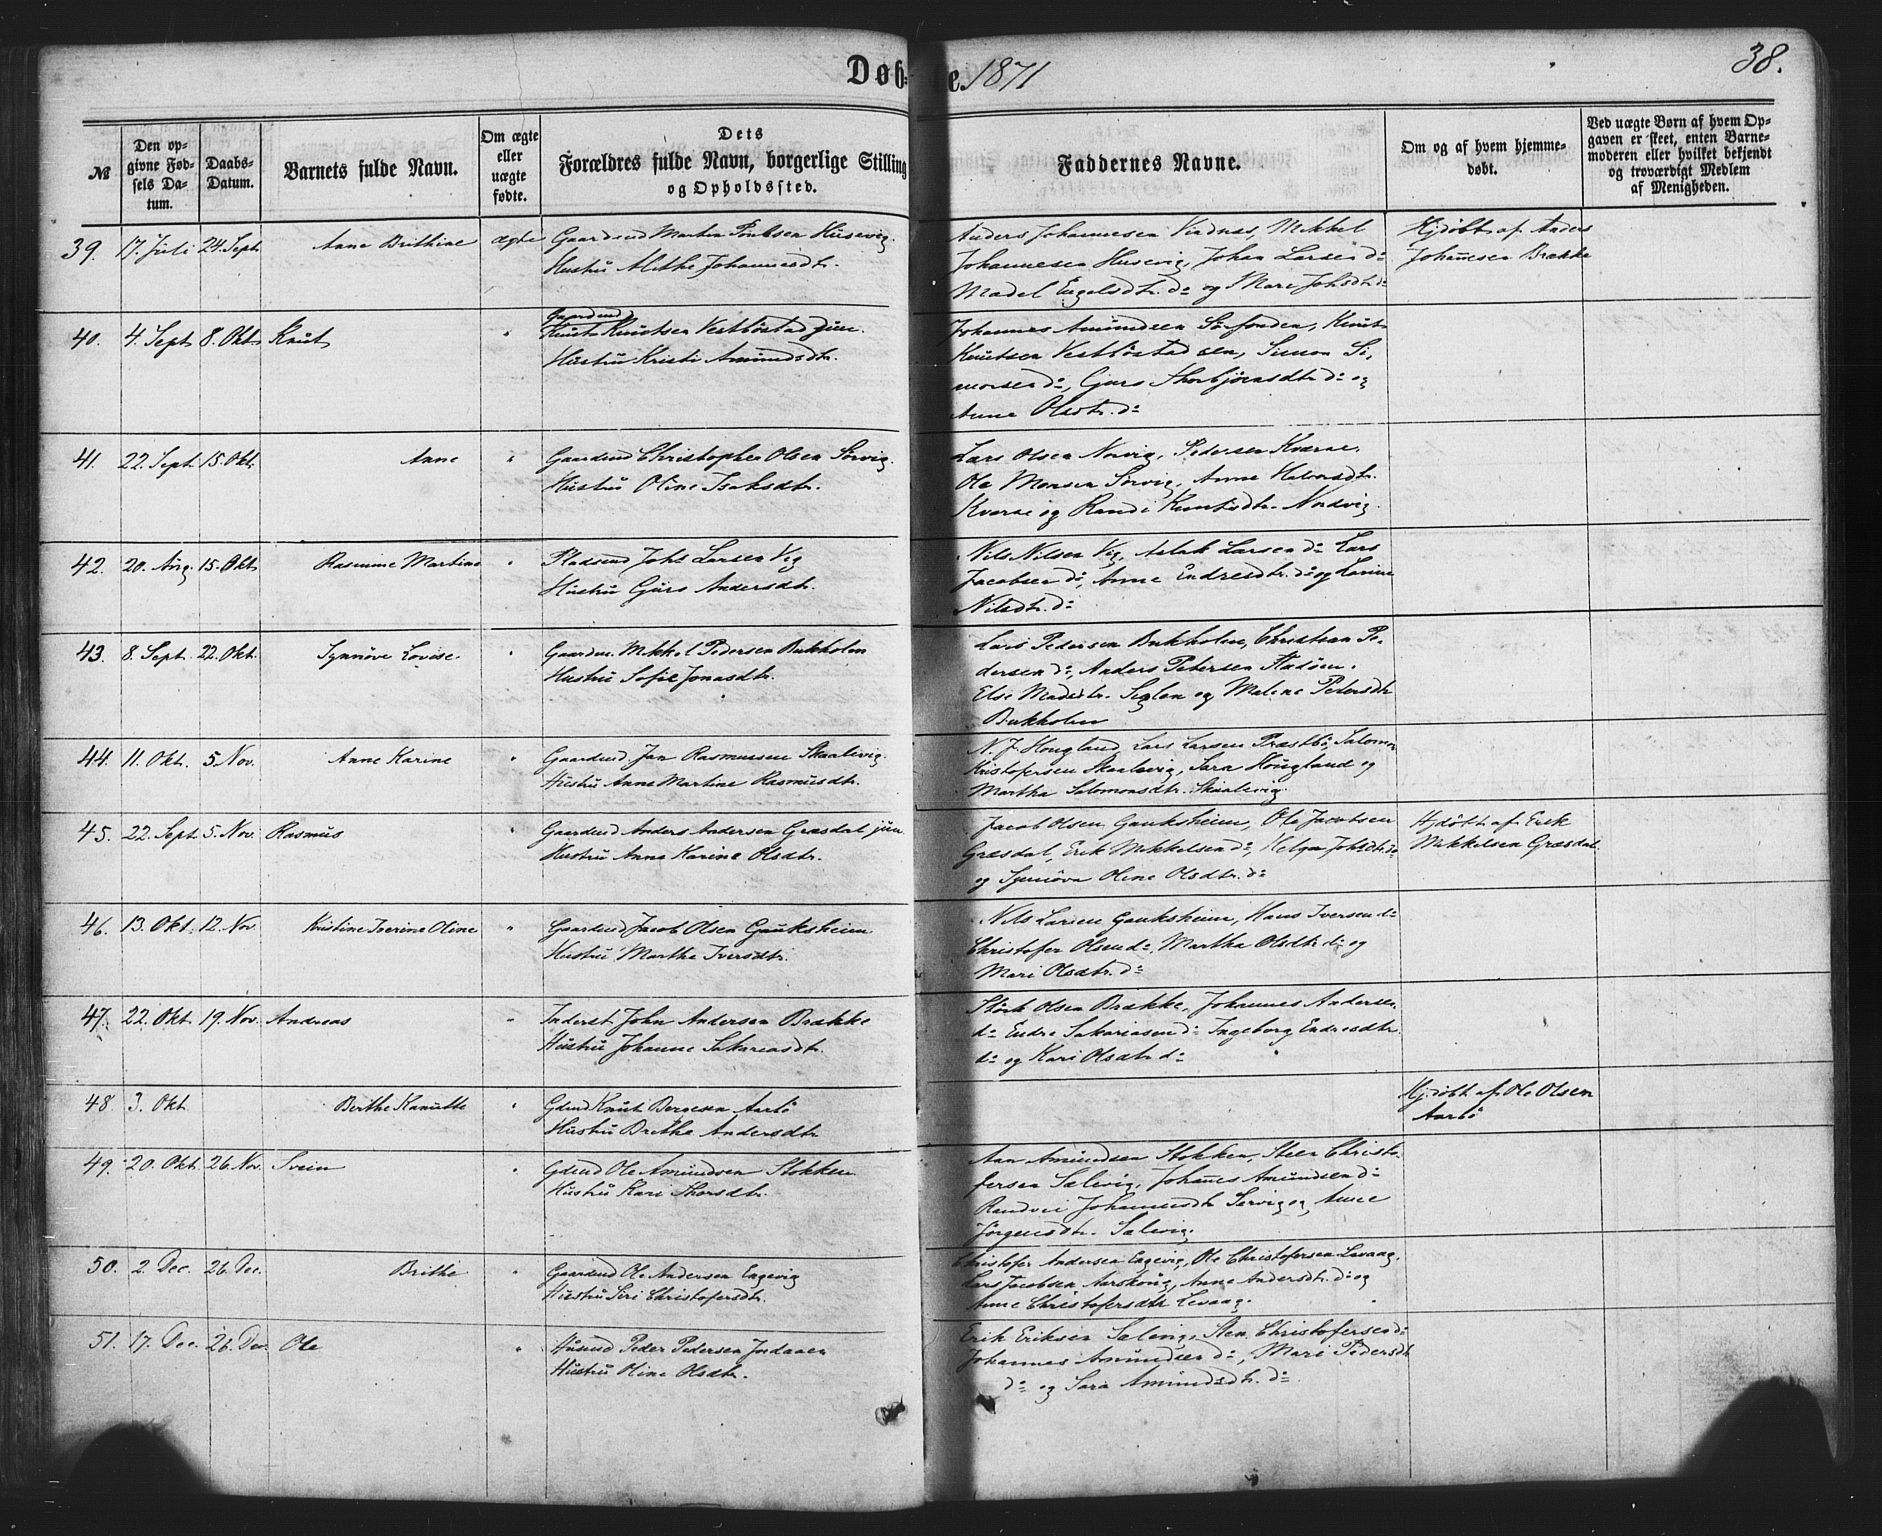 Døbte. 1871
38.
№
Den opgivne Fødsels Datum.
Daabs-Datum.
Barnets fulde Navn.
Om ægte eller uægte fødte.
Dets Forældres fulde Navn, borgerlige Stilling og Opholdssted.
Faddernes Navne.
Om og af hvem hjemmedøbt.
Ved uægte Børn af hvem Opgaven er skeet, enten Barnemoderen eller hvilket bekjendt og troværdigt Medlem af Menigheden.
39. 17. Juli 24. Sept. Anne Brithine ægte Gaardmd Morten Poulsen Husevig.
Hustru Alithe Johannesdtr.
Anders Johannesen Vednes, Mekkel
Johannesen Husevig, Johan Larsen do
Madel Engelsdtr. do og Mari Johsdtr do
Hjdøbt af Anders
Johannesen Brække
40. 4. Sept 8. Okt. Knut " Gaardmd
Knut Knutsen Vestbøstad jun.
Hustru Kristi Amundsdtr.
Johannes Amundsen Knut
Knutsen Vestbøstad sen, Simon Si-
monsen do, Guro Thorbjørnsdtr. do og
Anne Olsdtr. do
41. 22. Sept. 15. Okt. Anne " Gaardmd Christopher Olsen Sørvig.
Hustru Oline Isaksdtr.
Lars Olsen Norvig, Peder Kværne,
Ole Monsen Sørvig, Anne Halvorsdtr.
Kværne og Randi Knutsdtr. Nordvig.
42. 20. Aug. 15. Okt Rasmine Martine " Pladsmd Johs Larsen Vig
Hustru Guro Andersdtr.
Nils Nilsen Vig, Aslak Larsen do Lars
Jacobsen do, Anne Endresdtr. do og Larine
Nilsdtr. do
43. 8. Sept. 22. Okt. Synnøve Lovise. " Gaardm. Mekkel Pedersen Bukholm
Hustru Sofie Jonasdtr.
Lars Pedersen Bukholm, Christian Pe-
dersen do, Anders Petersen
Else Madsdtr. Seglen og Malene Petersdtr
Bukholm
44. 11. Okt. 5. Nov. Anne Karine " Gaardmd Jan Rasmussen Skaalevig.
Hustru Anne Martine Rasmusdtr.
N. J. Hougland, Lars Larsen Præstbø, Salomon
Kristofersen Skaalevig, Sara Hougland og
Martha Salomonsdtr. Skaalevig.
45. 22. Sept. 5. Nov. Rasmus " Gaardmd Anders Andersen Græsdal jun.
Hustru Anna Karine Olsdtr.
Jacob Olsen Gauksheim, Ole Jacobsen
Græsdal, Erik Mekkelsen do, Helga Johsdtr. do
og Synnøva Oline Olsdtr. do
Hjdøbt af Erik
Mekkelsen Græsdal.
46. 13. Okt. 12. Nov. Kristine Iverine Oline " Gaardmd Jacob Olsen Gauksheim
Hustru Martha Iversdtr.
Nils Larsen Gauksheim, Hans Iversen do
Christofer Olsen do, Martha Olsdtr do og
Mari Olsdtr. do
47. 22. Okt 19. Nov. Andreas " Inderst John Andersen Brække
Hustru Johanne Sakariasdtr.
Størk Olsen Brække, Johannes Andersen
do Endre Sakariasen do Ingeborg Endresdtr.
do og Kari Olsdtr do
48. 3. Okt Berthe Kanutte " Gdmd Knut Bergesen Aarbø
Hustru Brithe Andersdtr
Hjdøbt af Ole Olsen
Aarbø
49. 20. Okt. 26. Nov. Svein " Gdmd Ole Amundsen Stokken
Hustru Kari Thorsdtr.
Aan Amundsen Stokken, Sten Christo-
fersen Salevig, Johannes Amundsen do
Randvei Johannesdtr Sørvig og Anne
Jørgensdtr. Salevig.
50. 2. Dec. 26. Dec. Brithe " Gaardmd Ole Andersen Engevig
Hustru Siri Christofersdtr.
Christofer Andersen Engevig, Ole Christofersen Levaag,
Lars Jacobsen Aarskoug, Anne Andersdtr. do og
Anne Christofersdtr Levaag.
51. 17. Dec. 26. Dec. Ole " Husmd Peder Pedersen
Hustru Oline Olsdtr.
Erik Eriksen Salevig, Sten Christofersen do
Johannes Amundsen do, Mari Pedersdtr
do og Sara Amundsdtr. do